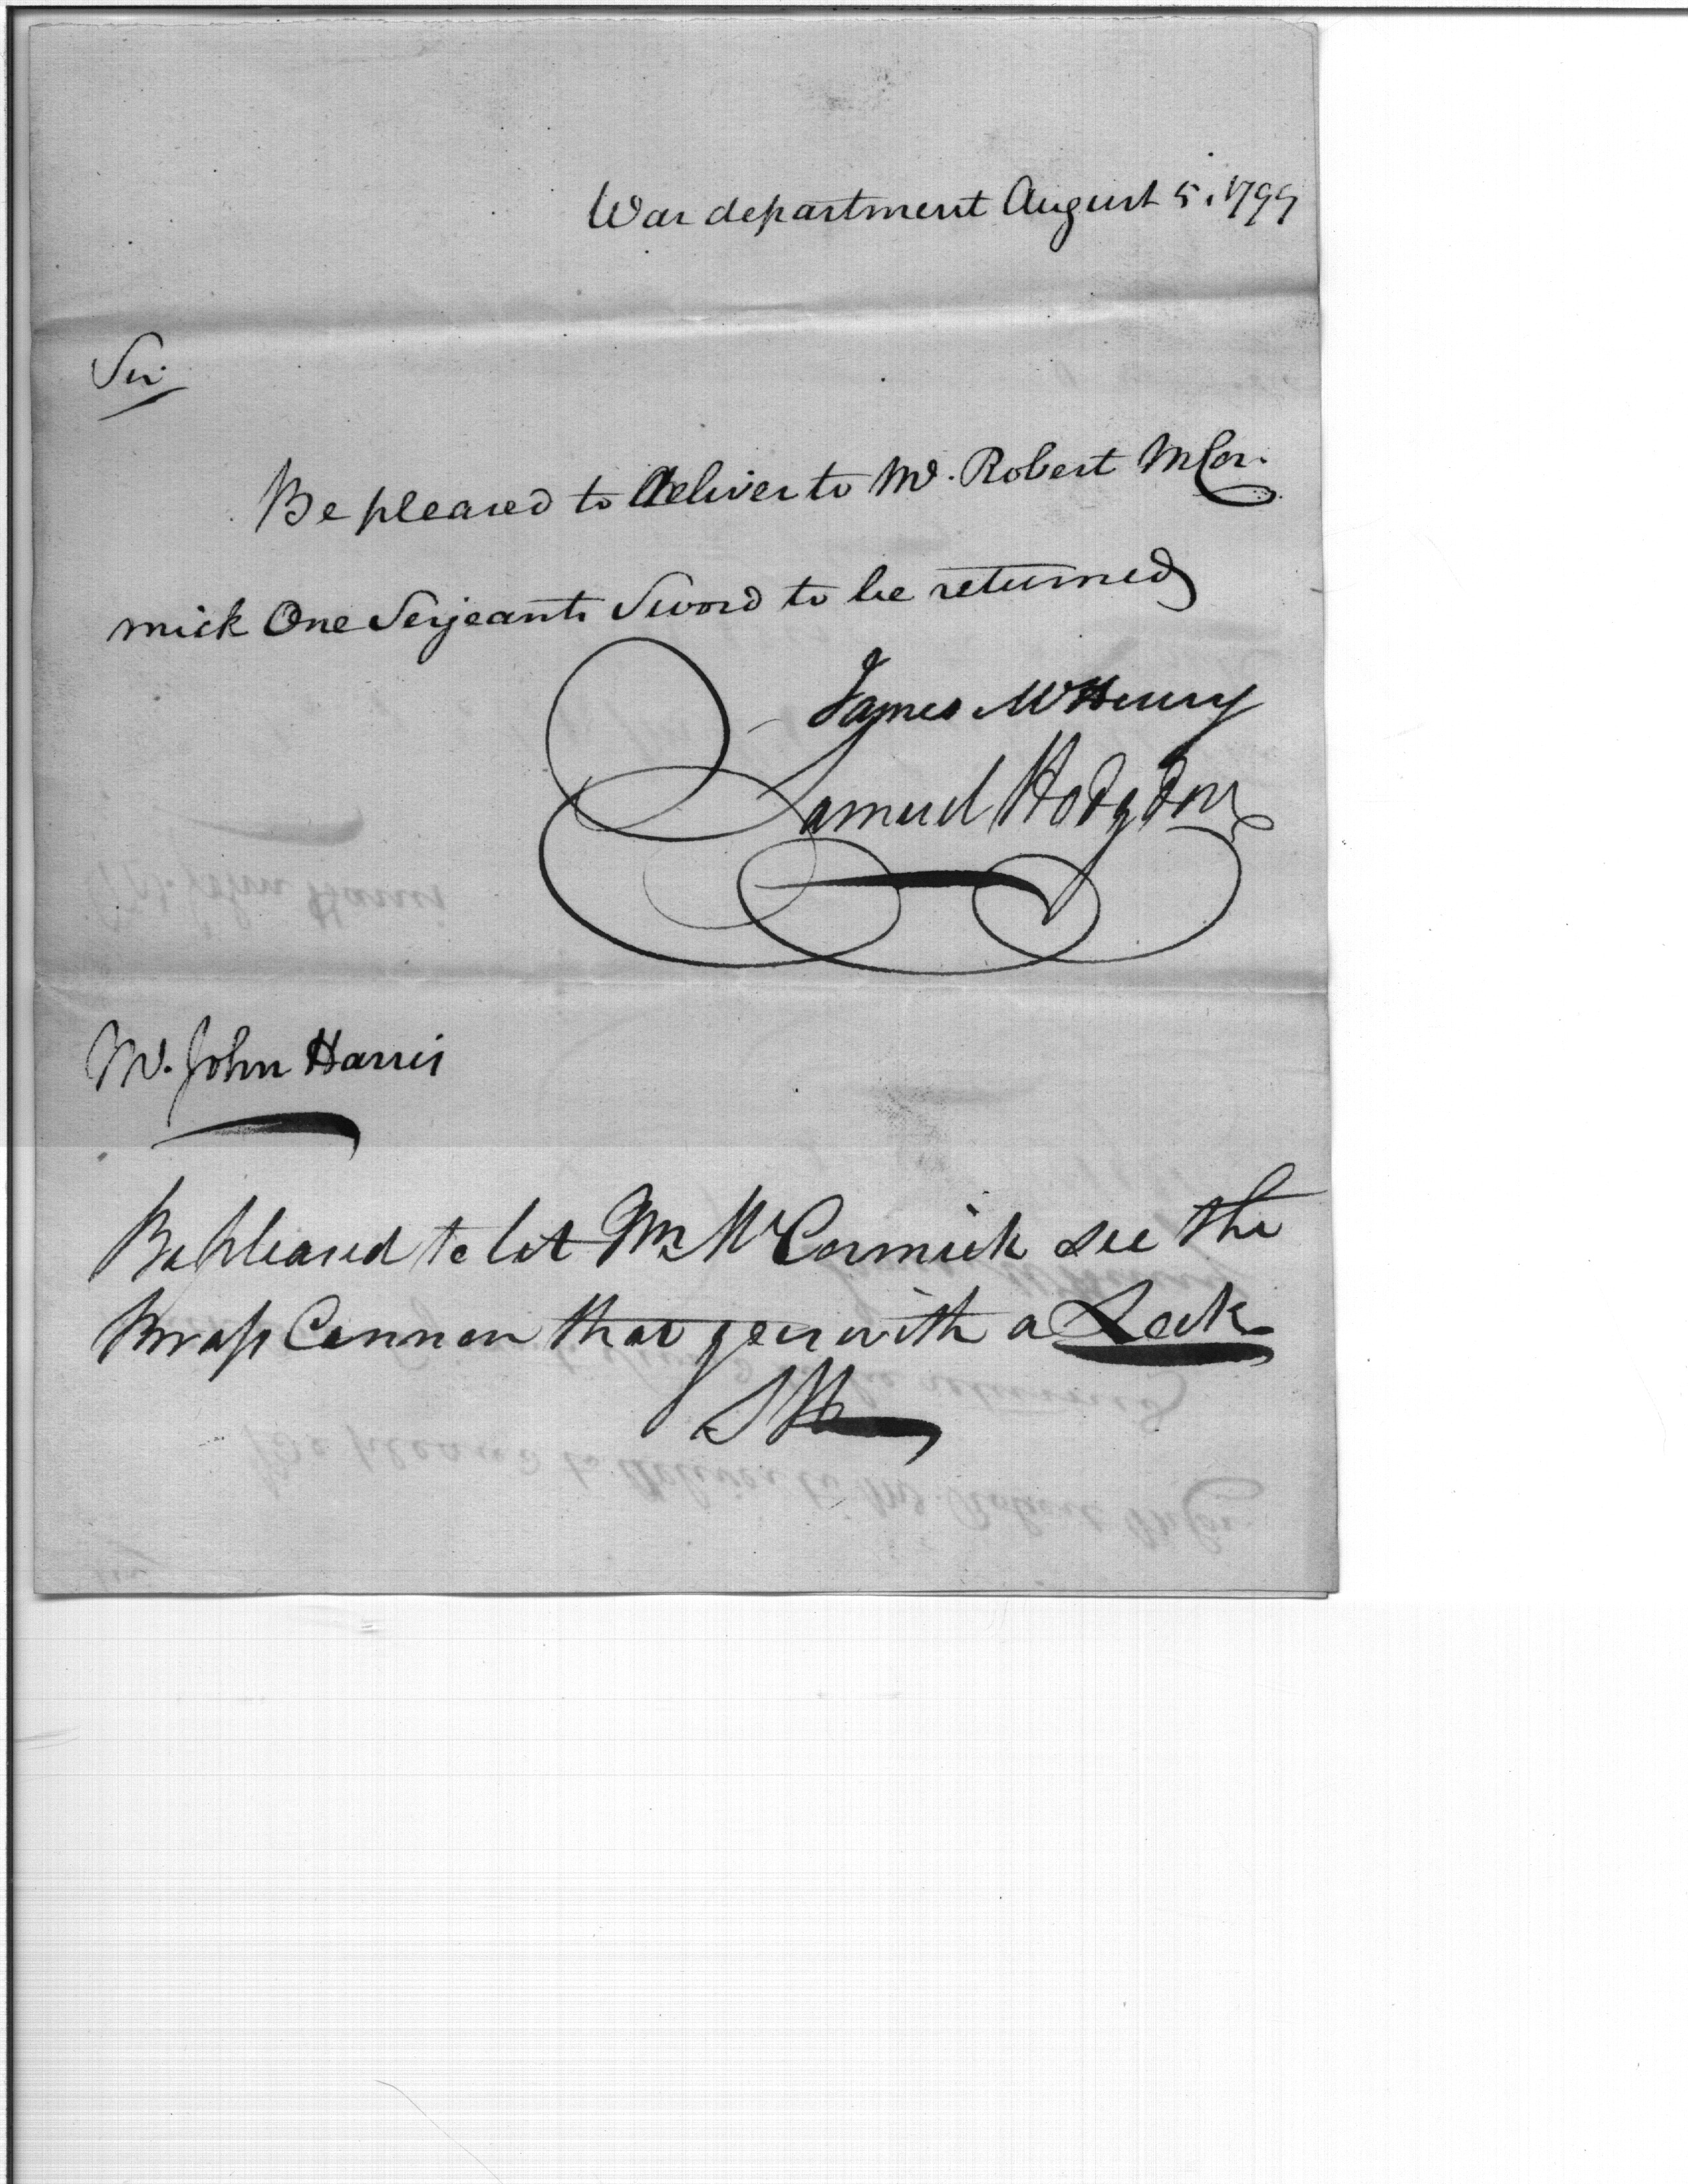 War department August 5. 1799
Sir
Be pleased to deliver to Mr. Robert McCor-
mick One Serjeants Sword to be returned
James McHenry
Samuel Hodgdon
Mr. John Harris
Be pleased to let Mr McCormick see the
Brass Cannon that goes with a Lock
SH